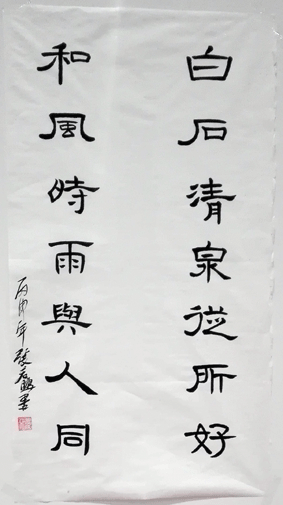 白石清泉從所好
和風時雨與人同
丙申年張友鵬書